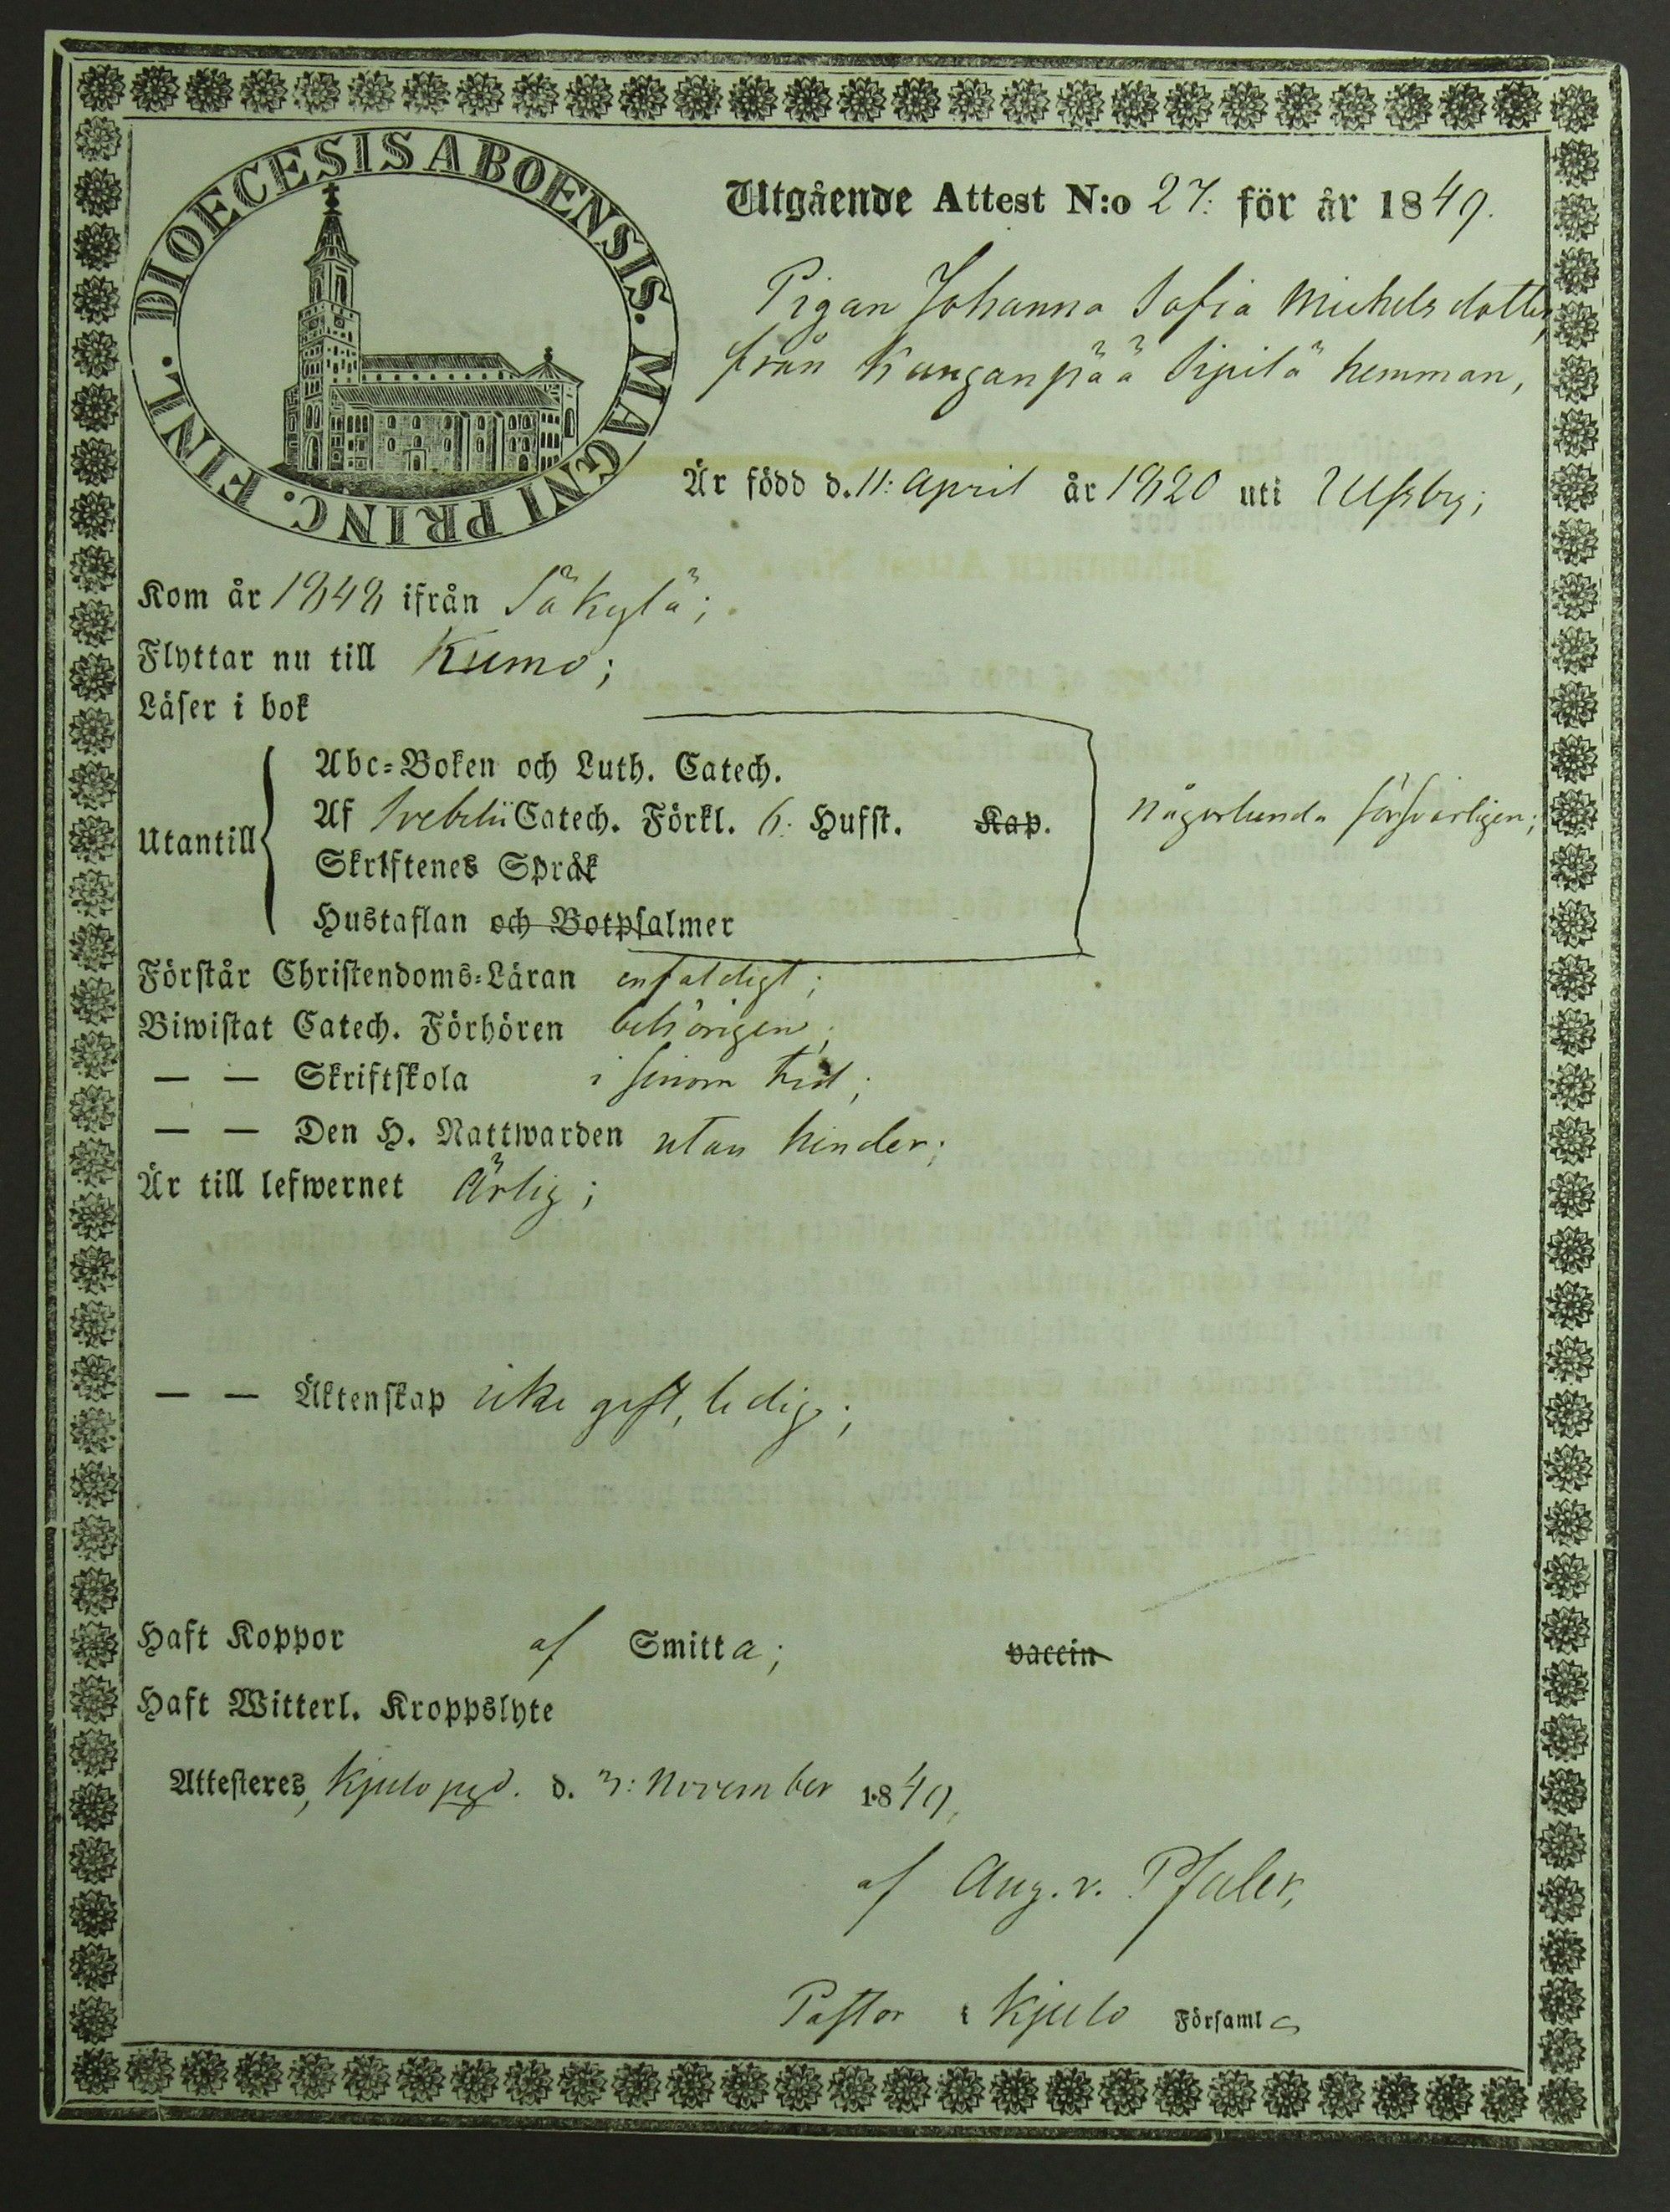 DIOECESIS ABOENSIS. MAGNI PRINC. FINL.
Utgående Attest N:o 27: för år 1849.
Pigan Johanna Sofia Michelsdotter,
från Kauganpää Sipilä hemman,
Är född d. 11: April år 1820 uti Ulfsby;
Kom år 1848 ifrån Säkylä;
Flyttar nu till Kumo;
Läser i bok
Utantill
Abc-Boken och Luth. Catech.
Af Svebelii Catech. Förkl. 6: Hufst. Kap.
någorlunda försvarligen;
Skriftenes Språk
Hustaflan och Botpsalmer
Förstår Christendoms-Läran enfaldigt;
Biwistat Catech. Förhören behörigen;
— — Skriftskola i sinom tid;
— — Den H. Nattwarden utan hinder;
Är till lefwernet Ärlig;
— — Äktenskap icke gift, ledig;
Haft Koppor af Smitta; vaccin
Haft Witterl. Kroppslyte
Attesteres, Kjulo pgd. d. 3: November 1849,
af Aug. v. Pfaler,
Pastor i Kjulo Församl